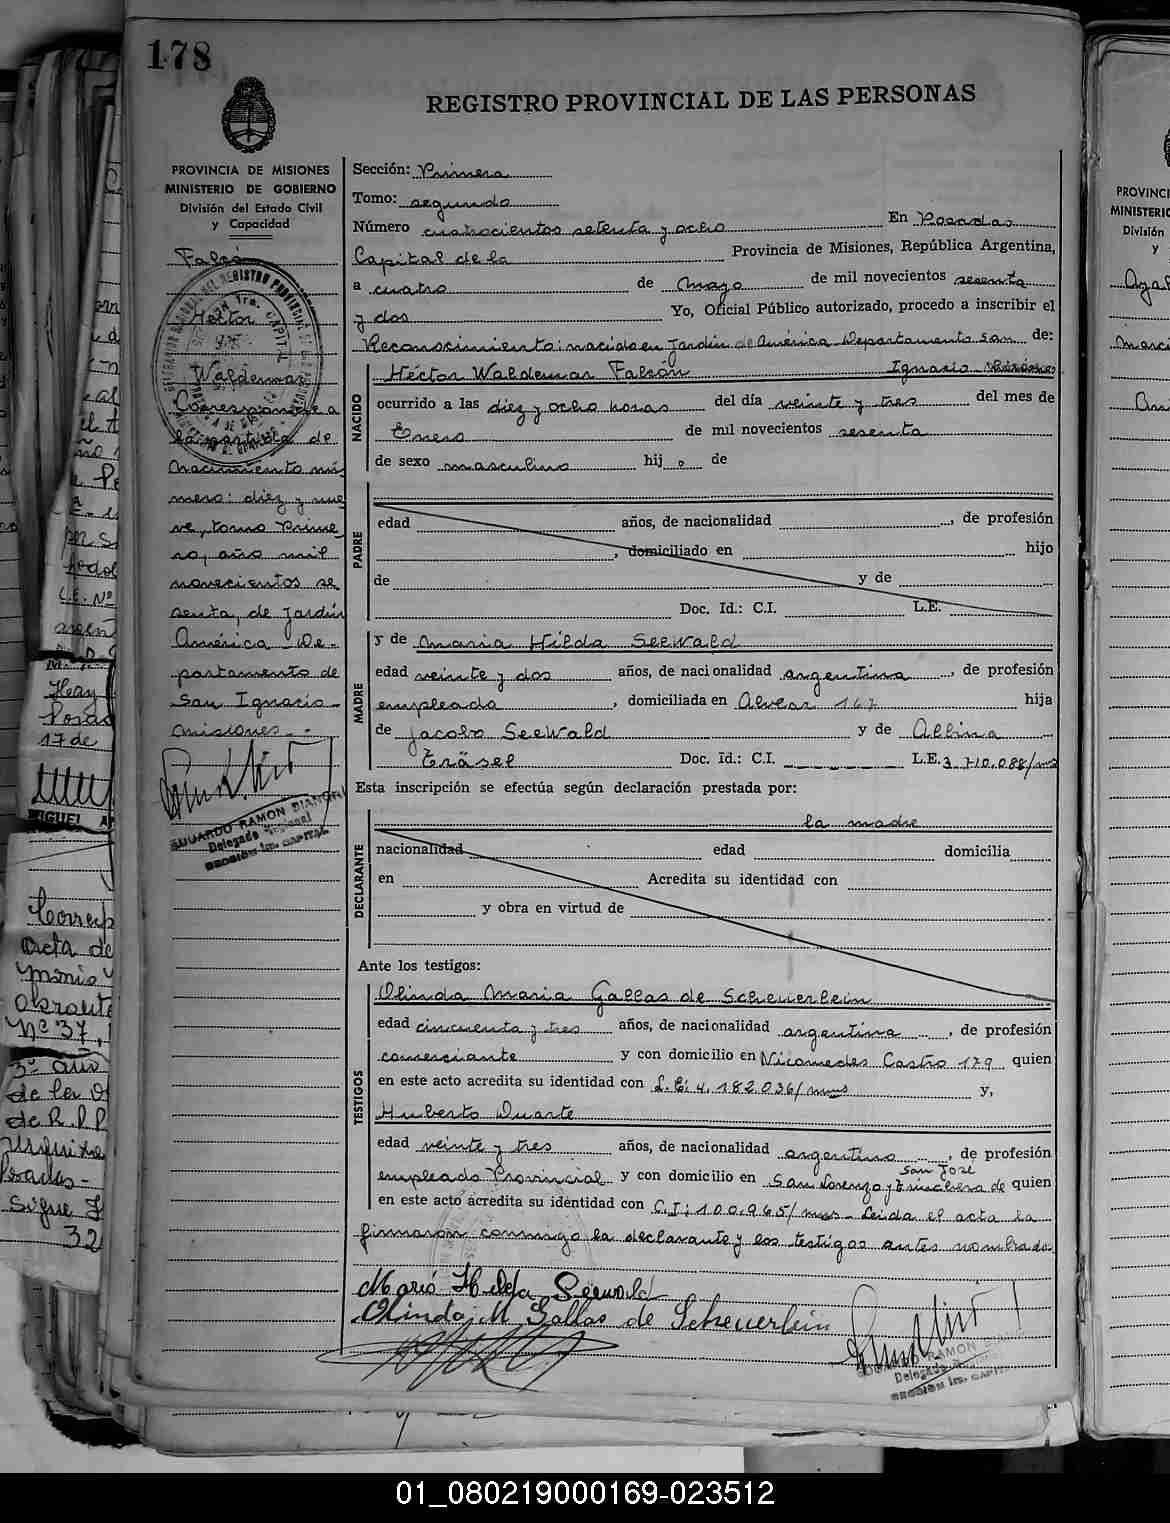 178
REGISTRO PROVINCIAL DE LAS PERSONAS
PROVINCIA DE MISIONES
MINISTERIO DE GOBIERNO
División del Estado Civil
y Capacidad
Falcón
Héctor
Waldemar
Corresponde a
la partida de
nacimiento nú
mero: diez y nue
ve, tomo Prime
ro, año mil
novecientos se
senta, de Jardín
América - De-
partamento de
San Ignacio -
misiones. -
EDUARDO RAMON BIANCHI
Delegado Regional
SECCIÓN 1ra. CAPITAL
Sección: Primera
Tomo: segundo
Número cuatrocientos setenta y ocho En Posadas
Capital de la Provincia de Misiones, República Argentina,
a cuatro de mayo de mil novecientos sesenta
y dos Yo, Oficial Público autorizado, procedo a inscribir el
Reconocimiento: nacido en Jardín de América Departamento San de:
NACIDO
Héctor Waldemar Falcón Ignacio Misiones
ocurrido a las diez y ocho horas del día veinte y tres del mes de
Enero de mil novecientos sesenta
de sexo masculino hijo de
PADRE
edad años, de nacionalidad , de profesión
, domiciliado en hijo
de y de
Doc. Id.: C.I. L.E.
MADRE
y de Maria Hilda Seewald
edad veinte y dos años, de nacionalidad argentina, de profesión
empleada, domiciliada en Alvear 167 hija
de Jacobo Seewald y de Albina
Träsel Doc. Id.: C.I. L.E. 3.710.088/ms
Esta inscripción se efectúa según declaración prestada por:
la madre
DECLARANTE
nacionalidad edad domicilia
en Acredita su identidad con
y obra en virtud de
Ante los testigos:
TESTIGOS
Olinda Maria Gallas de Scheuerlein
edad cincuenta y tres años, de nacionalidad argentina, de profesión
comerciante y con domicilio en Nicomedes Castro 179 quien
en este acto acredita su identidad con L.E: 4.182.036/mns y,
Huberto Duarte
edad veinte y tres años, de nacionalidad argentino, de profesión
San José
empleado Provincial y con domicilio en San Lorenzo y Trinchera de quien
en este acto acredita su identidad con C.I: 100.965/mns - Leida el acta la
firmaron conmigo la declarante y los testigos antes nombrados
Maria Hilda Seewald
Olinda M Gallas de Scheuerlein
EDUARDO RAMON BIANCHI
Delegado Regional
SECCIÓN 1ra. CAPITAL
01_080219000169-023512